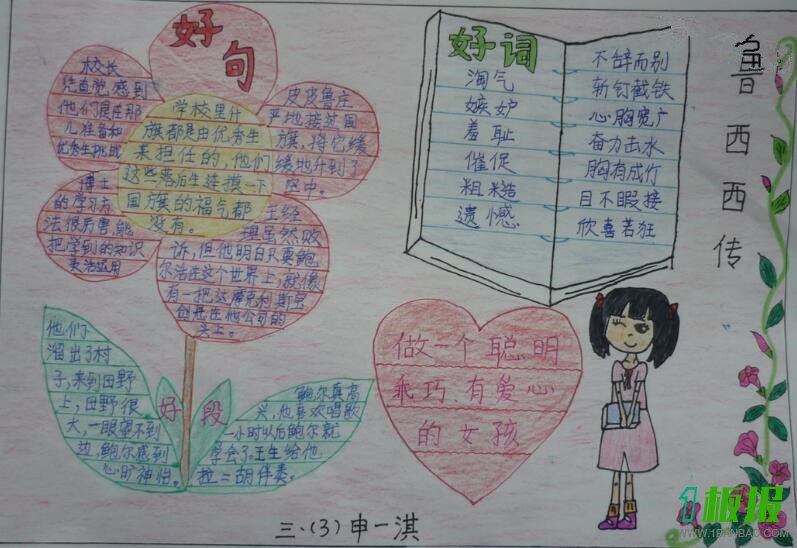 好句
校长
凭直觉,感到
他们是在那
儿准备和
优秀生挑战
学校里升
旗都是由优秀生
来担任的,他们
这些落后生连摸一下
国旗的福气都
没有。
皮皮鲁庄
严地接过国
旗,将它缓
缓地升到了
空中。
博士
的学习方
法很厉害,能
把学到的知识
灵活运用
王经
理虽然败
诉,但他明白只要鲍
尔活在这个世界上,就像
有一把达摩克利斯宝
剑悬在他公司的
头上。
好段
他们
溜出了村
子,来到田野
上,田野很
大,一眼望不到
边,鲍尔感到
心旷神怡。
鲍尔真高
兴,他喜欢唱歌
一小时以后鲍尔就
学会了,王生给他
拉二胡伴奏。
好词
淘气
嫉妒
羞耻
催促
粗糙
遗憾
不辞而别
斩钉截铁
心胸宽广
奋力击水
胸有成竹
目不暇接
欣喜若狂
鲁西西传
做一个聪明
乖巧、有爱心
的女孩
三、(3)申一淇
1板报
WWW.1BANBAO.COM